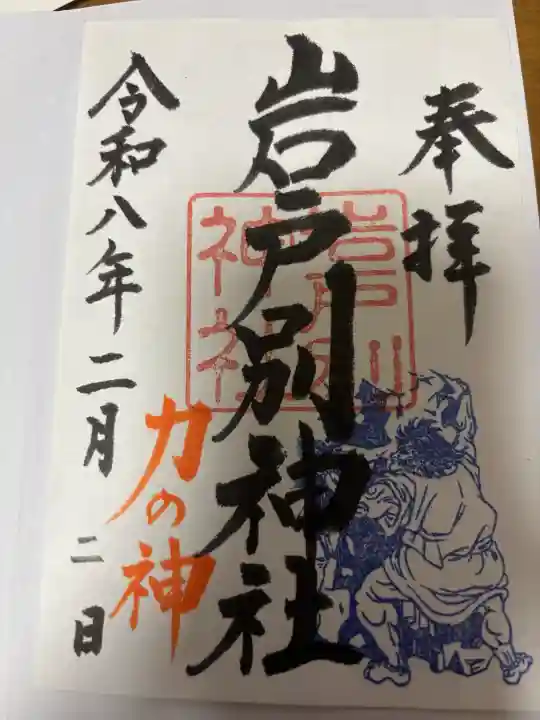 奉拝
岩戸別神社
岩戸別
神社
力の神
令和八年二月二日